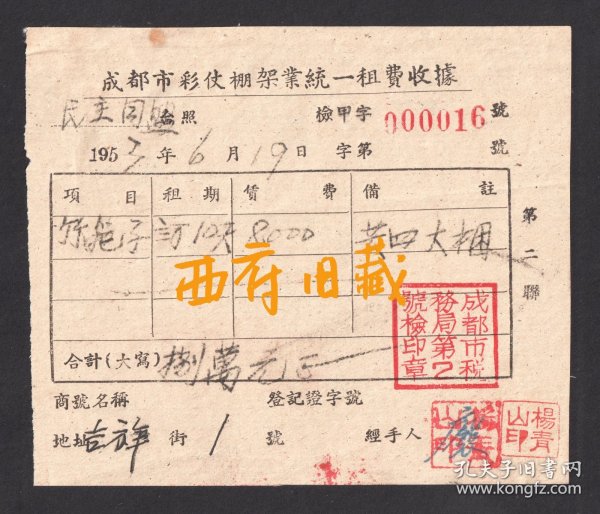 成都市彩仗棚架業統一租費收據
民主同盟 台照 檢甲字 000016 號
1953年6月19日 字第 號
項目 租期 賃費 備註
訂10天 8000 共四大捆
第二聯
西府旧藏
合計(大寫) 捌萬元正
成都市税務局第2號檢印章
商號名稱 登記證字號
地址 吉祥 街 1 號 經手人
楊青山印
孔夫子旧书网
www.kongfz.com